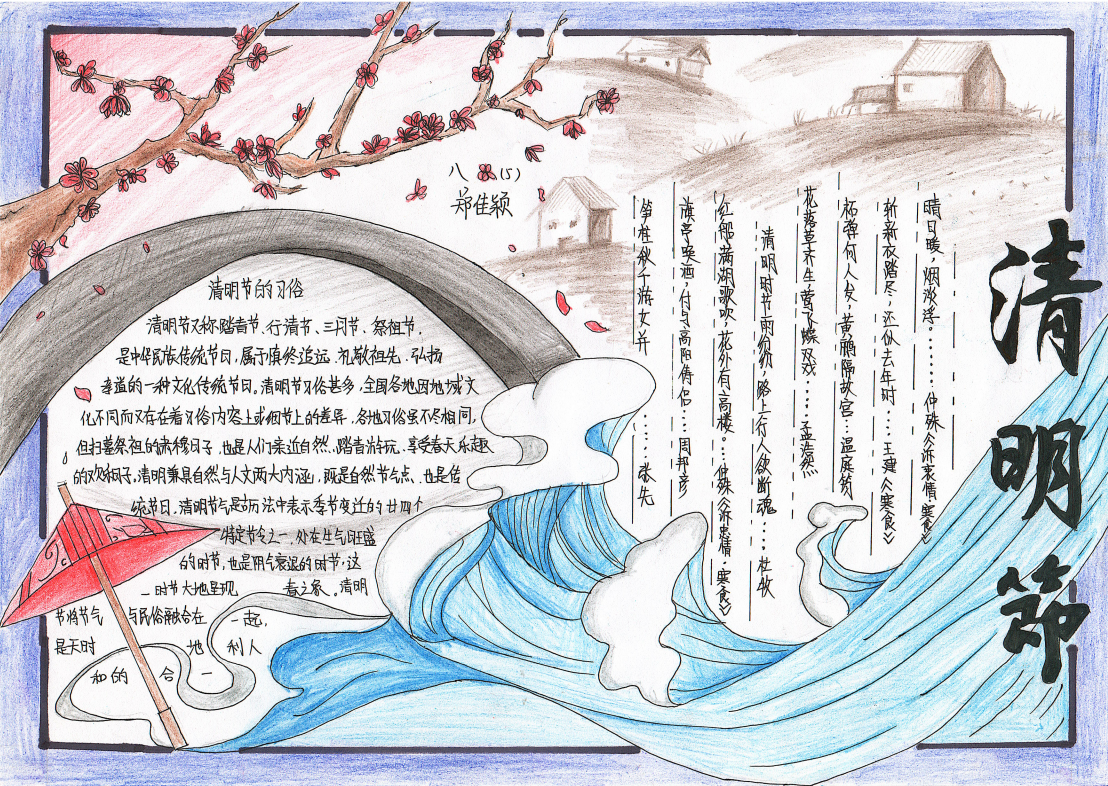 清明节
八(5)
郑佳颖
清明节的习俗
清明节又称踏青节、行清节、三月节、祭祖节,
是中华民族传统节日,属于慎终追远、礼敬祖先、弘扬
孝道的一种文化传统节日。清明节习俗甚多,全国各地因地域文
化不同而又存在着习俗内容上或细节上的差异,各地习俗虽不尽相同,
但扫墓祭祖的肃穆日子,也是人们亲近自然、踏青游玩、享受春天乐趣
的欢乐日子,清明兼具自然与人文两大内涵,既是自然节气点、也是传
统节日,清明节气是历法中表示季节变迁的廿四个
特定节令之一,处在生气旺盛
的时节,也是阴气衰退的时节,这
一时节大地呈现 春之象。清明
节将节气 与民俗融合在 一起,
是天时 地 利人
和的 合 一
晴日暖,烟淡浮。……仲殊《诉衷情·寒食》
斩新衣踏尽,还似去年时……王建《寒食》
柘弹何人发,黄鹂隔故宫…温庭筠
花落草齐生,莺飞蝶双戏……孟浩然
清明时节雨纷纷,路上行人欲断魂……杜牧
红船满湖歌吹,花外有高楼。…仲殊《诉衷情·寒食》
旗亭唤酒,付与高阳俦侣……周邦彦
笋柱秋千游女并……张先